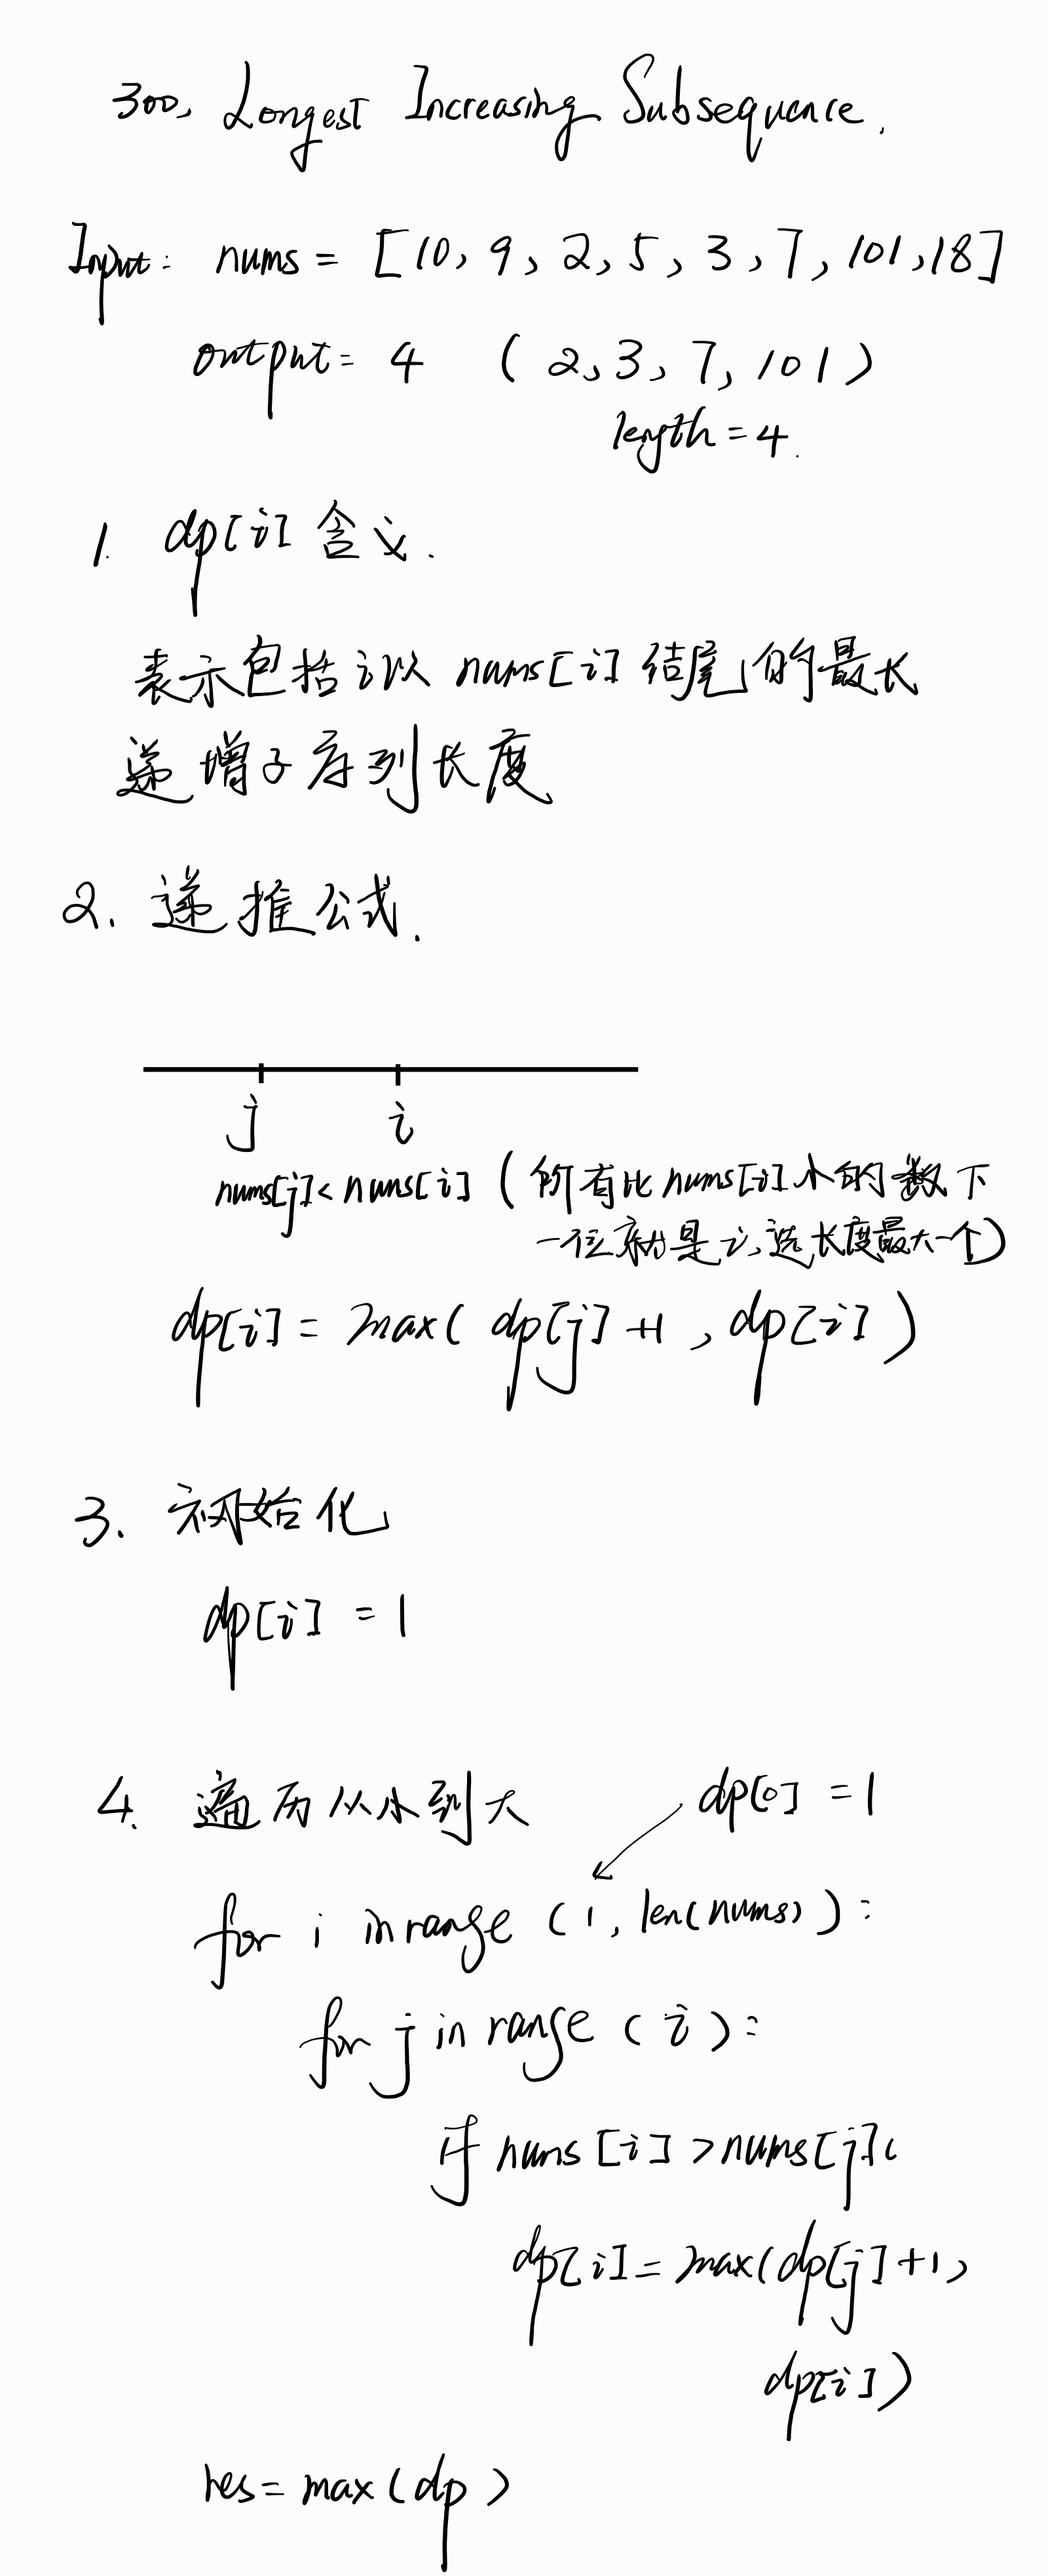 300. Longest Increasing Subsequence.
Input: nums = [10, 9, 2, 5, 3, 7, 101, 18]
output = 4 (2, 3, 7, 101)
length = 4.
1. dp[i] 含义.
表示包括i以 nums[i] 结尾的最长
递增子序列长度
2. 递推公式.
j i
nums[j] < nums[i] (所有比nums[i]小的数下
一位就是i, 选长度最大一个)
dp[i] = max( dp[j] +1 , dp[i] )
3. 初始化
dp[i] = 1
4. 遍历从小到大 dp[0] = 1
for i in range (1, len(nums)):
for j in range (i):
if nums [i] > nums[j]:
dp[i] = max(dp[j] +1,
dp[i])
res = max(dp)